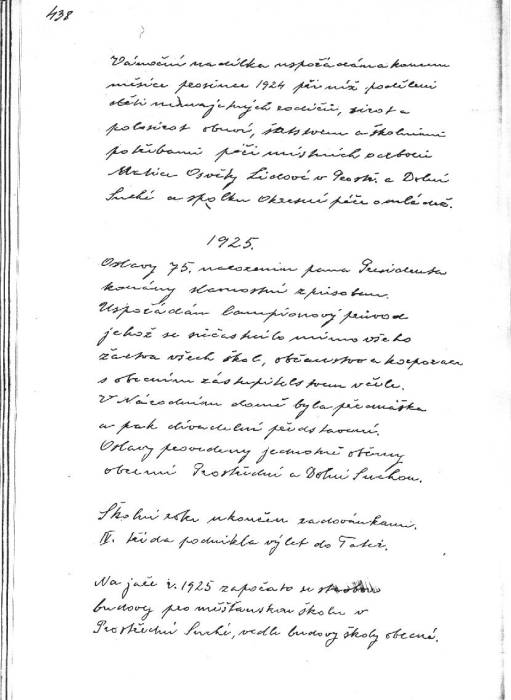 438
Vánoční nadílka uspořádána koncem
měsíce prosince 1924 při níž poděleni
děti nemajetných rodičů, sirot a
polosirot obuví, šatstvem a školními
potřebami péčí místních odborů
Matice Osvěty Lidové v Prostř. a Dolní
Suché a spolku Okresní péče o mládež.
1925.
Oslavy 75. narozenin pana Presidenta
konány slavnostní způsobem.
Uspořádán lampionový průvod
jehož se súčastnilo mimo všeho
žactva všech škol, občanstvo a korporace
s obecním zastupitelstvem v čele.
V Národním domě byla přednáška
a pak divadelní představení.
Oslavy provedeny jednotně oběmy
obcemi Prostřední a Dolní Suchou.
Školní rok ukončen radovánkami.
IV. třída podnikla výlet do Tater.
Na jaře r. 1925 započato se
budovy pro měšťanskou školu v
Prostřední Suché, vedle budovy školy obecné.